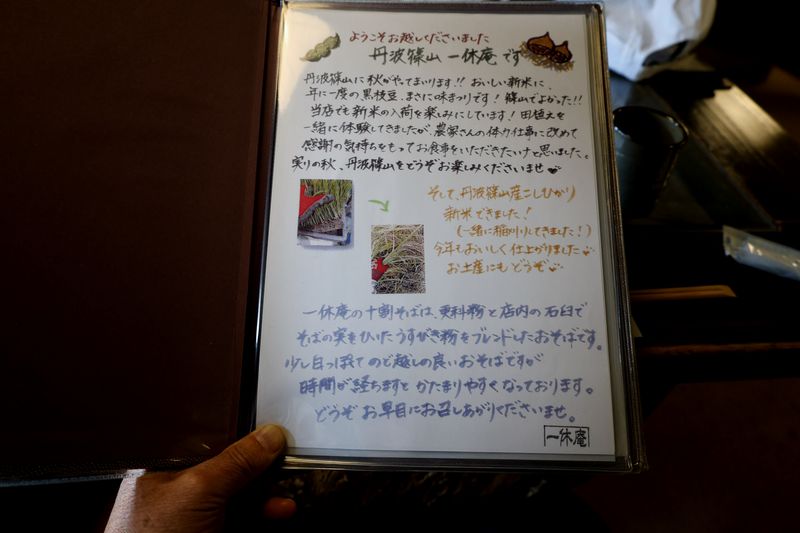 ようこそお越しくださいました
丹波篠山 一休庵 です
丹波篠山に秋がやってまいります!! おいしい新米に、
年に一度の黒枝豆、まさに味まつりです! 篠山でよかった!!
当店でも新米の入荷を楽しみにしています! 田植えを
一緒に体験してきましたが、農家さんの体力仕事に改めて
感謝の気持ちをもってお食事をいただきたいナと思いました。
実りの秋、丹波篠山をどうぞお楽しみくださいませ
そして、丹波篠山産こしひかり
新米できました!
(一緒に稲刈りしてきました!)
今年もおいしく仕上がりました
お土産にもどうぞ
一休庵の十割そばは、更科粉と店内の石臼で
そばの実をひいたうすびき粉をブレンドしたおそばです。
少し白っぽくて のど越しの良いおそばですが
時間が経ちますと かたまりやすくなっております。
どうぞ お早目にお召しあがりくださいませ。
一休庵